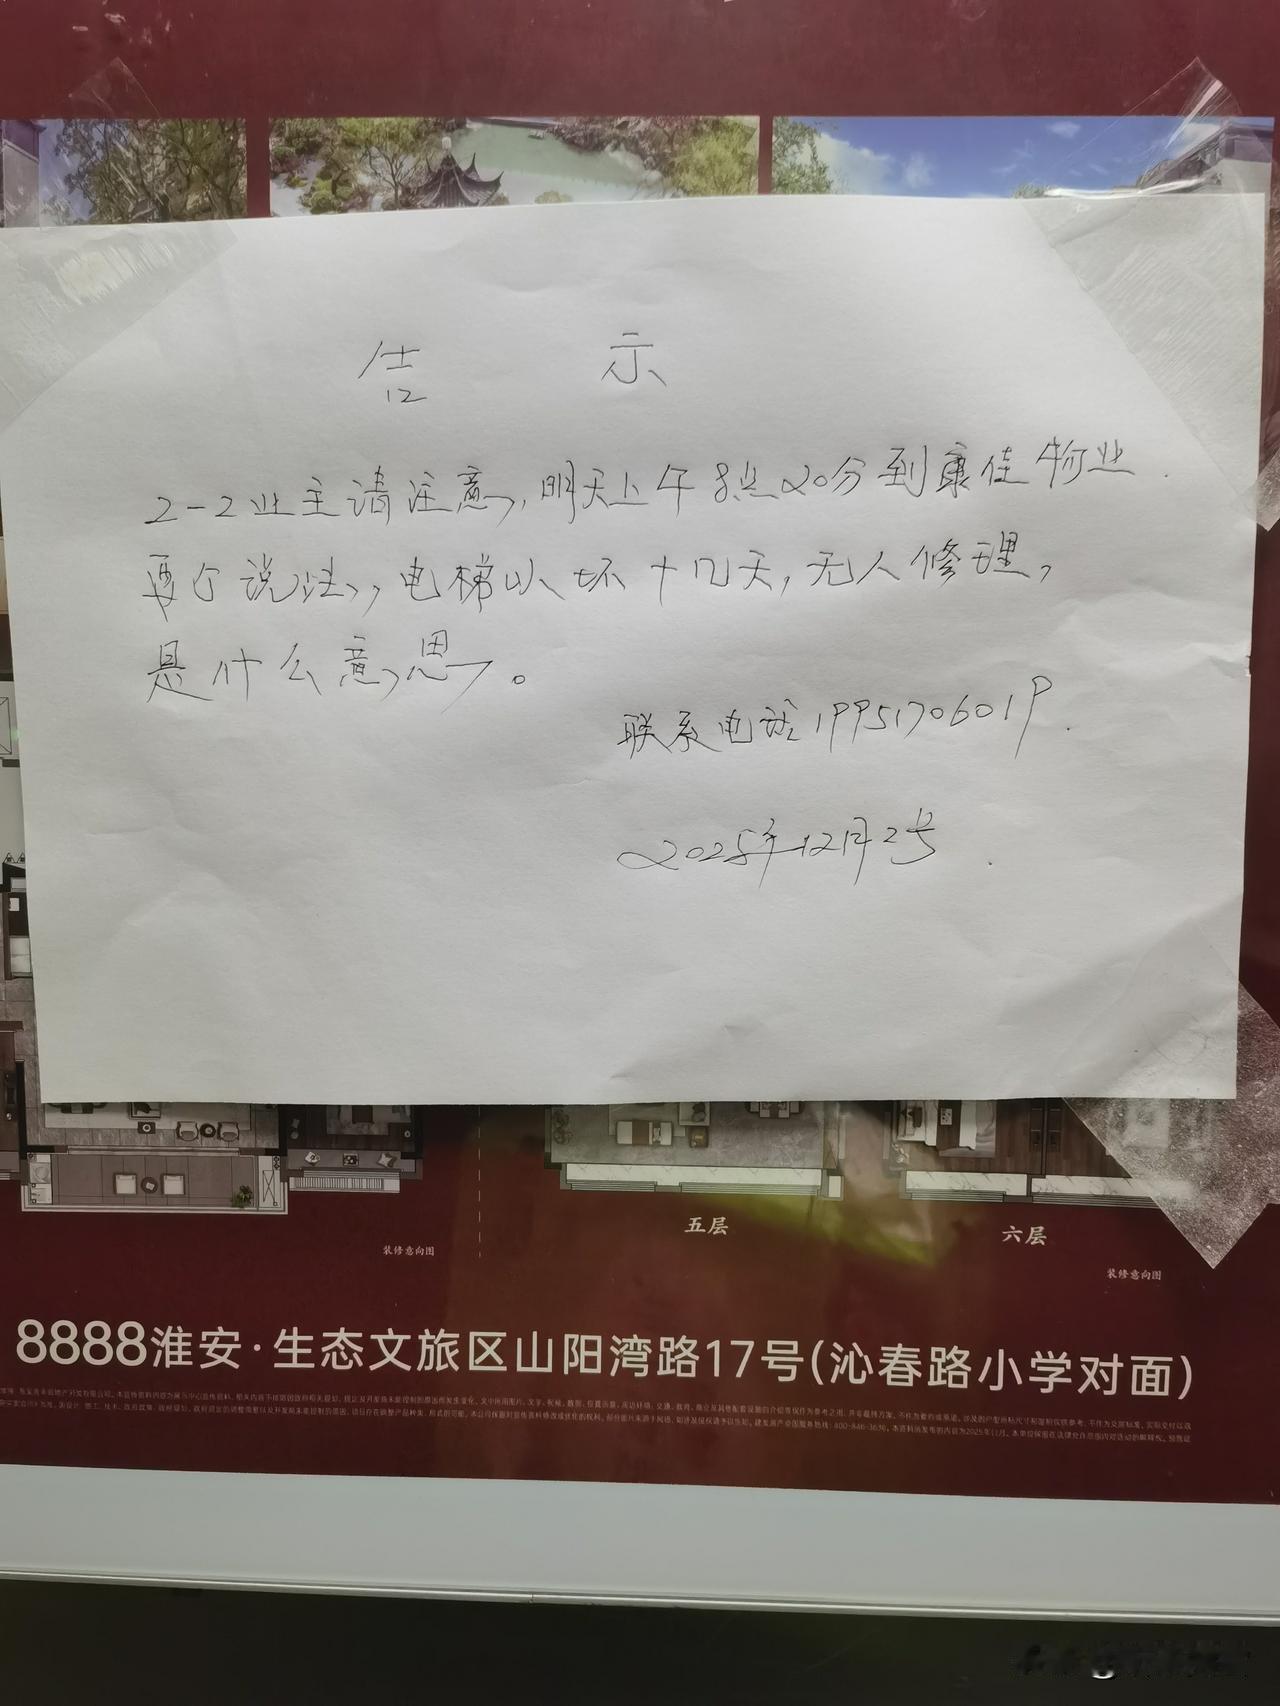 告 示
2-2业主请注意，明天上午8点20分到康佳物业.
要个说法，电梯以坏十几天，无人修理，
是什么意思。
联系电话19951706019.
2025年12月2号.
五层
六层
装修意向图
装修意向图
8888淮安·生态文旅区山阳湾路17号(沁春路小学对面)